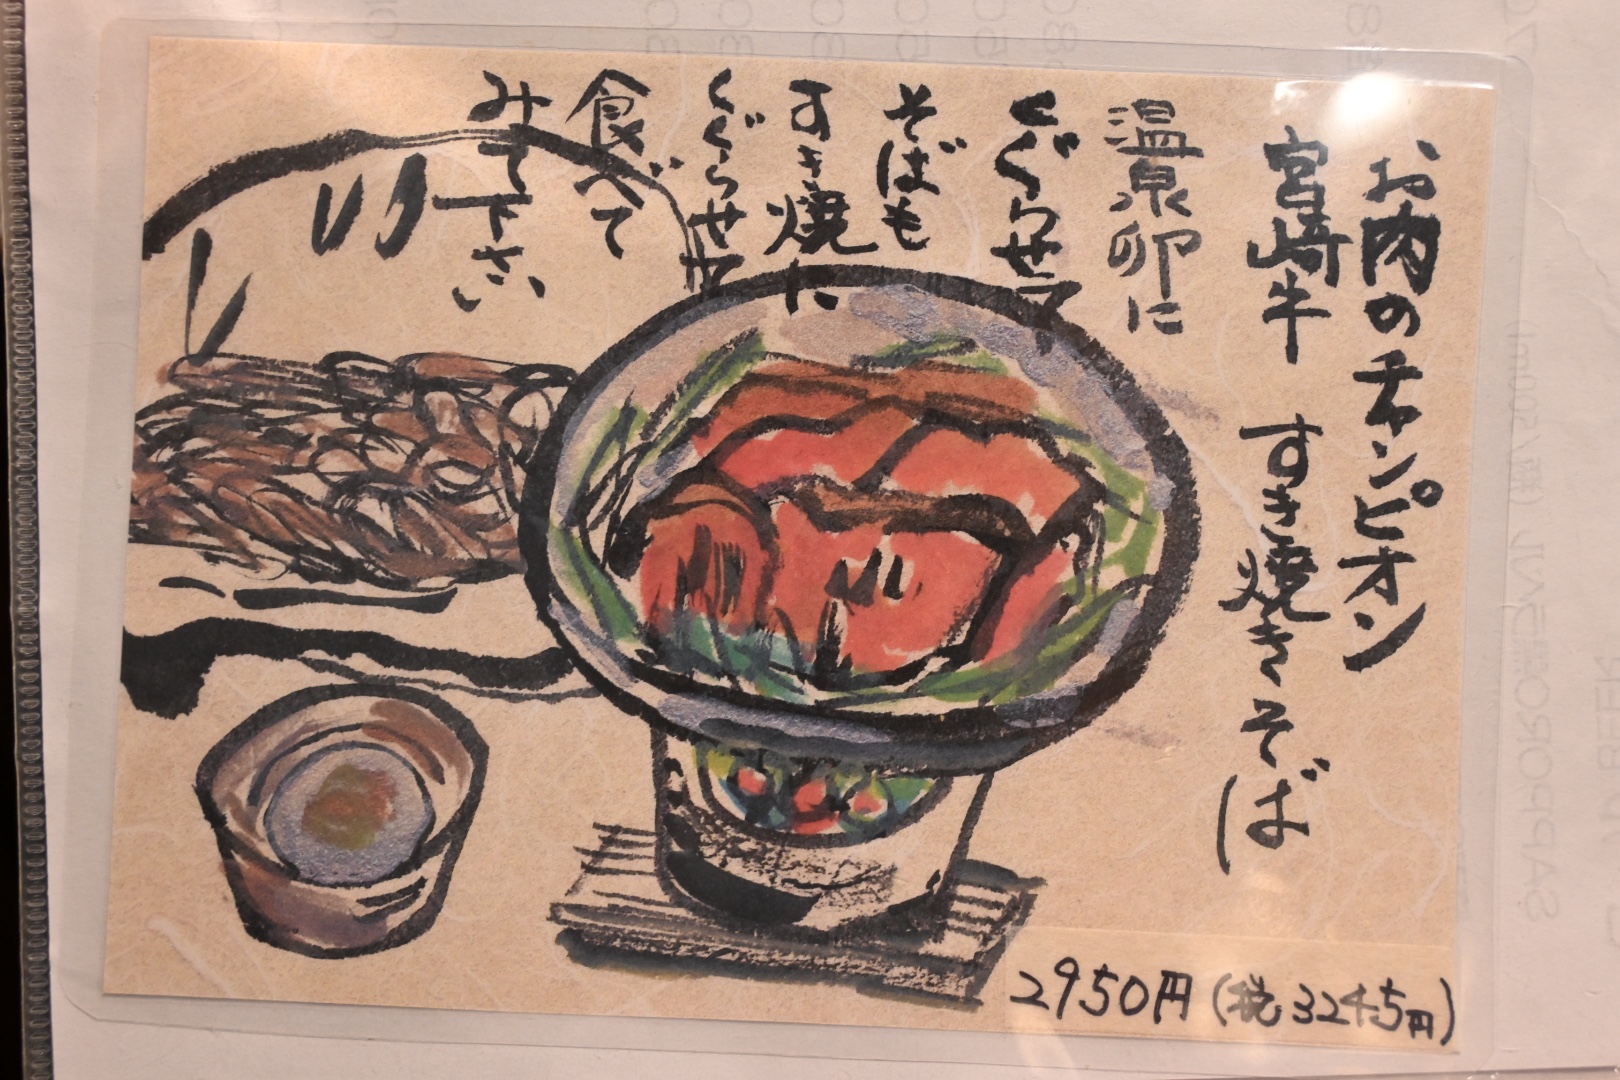 お肉のチャンピオン
宮崎牛 すき焼きそば
温泉卵に
くぐらせて
そばも
すき焼に
くぐらせて
食べて
みて下さい
2950円(税3245円)